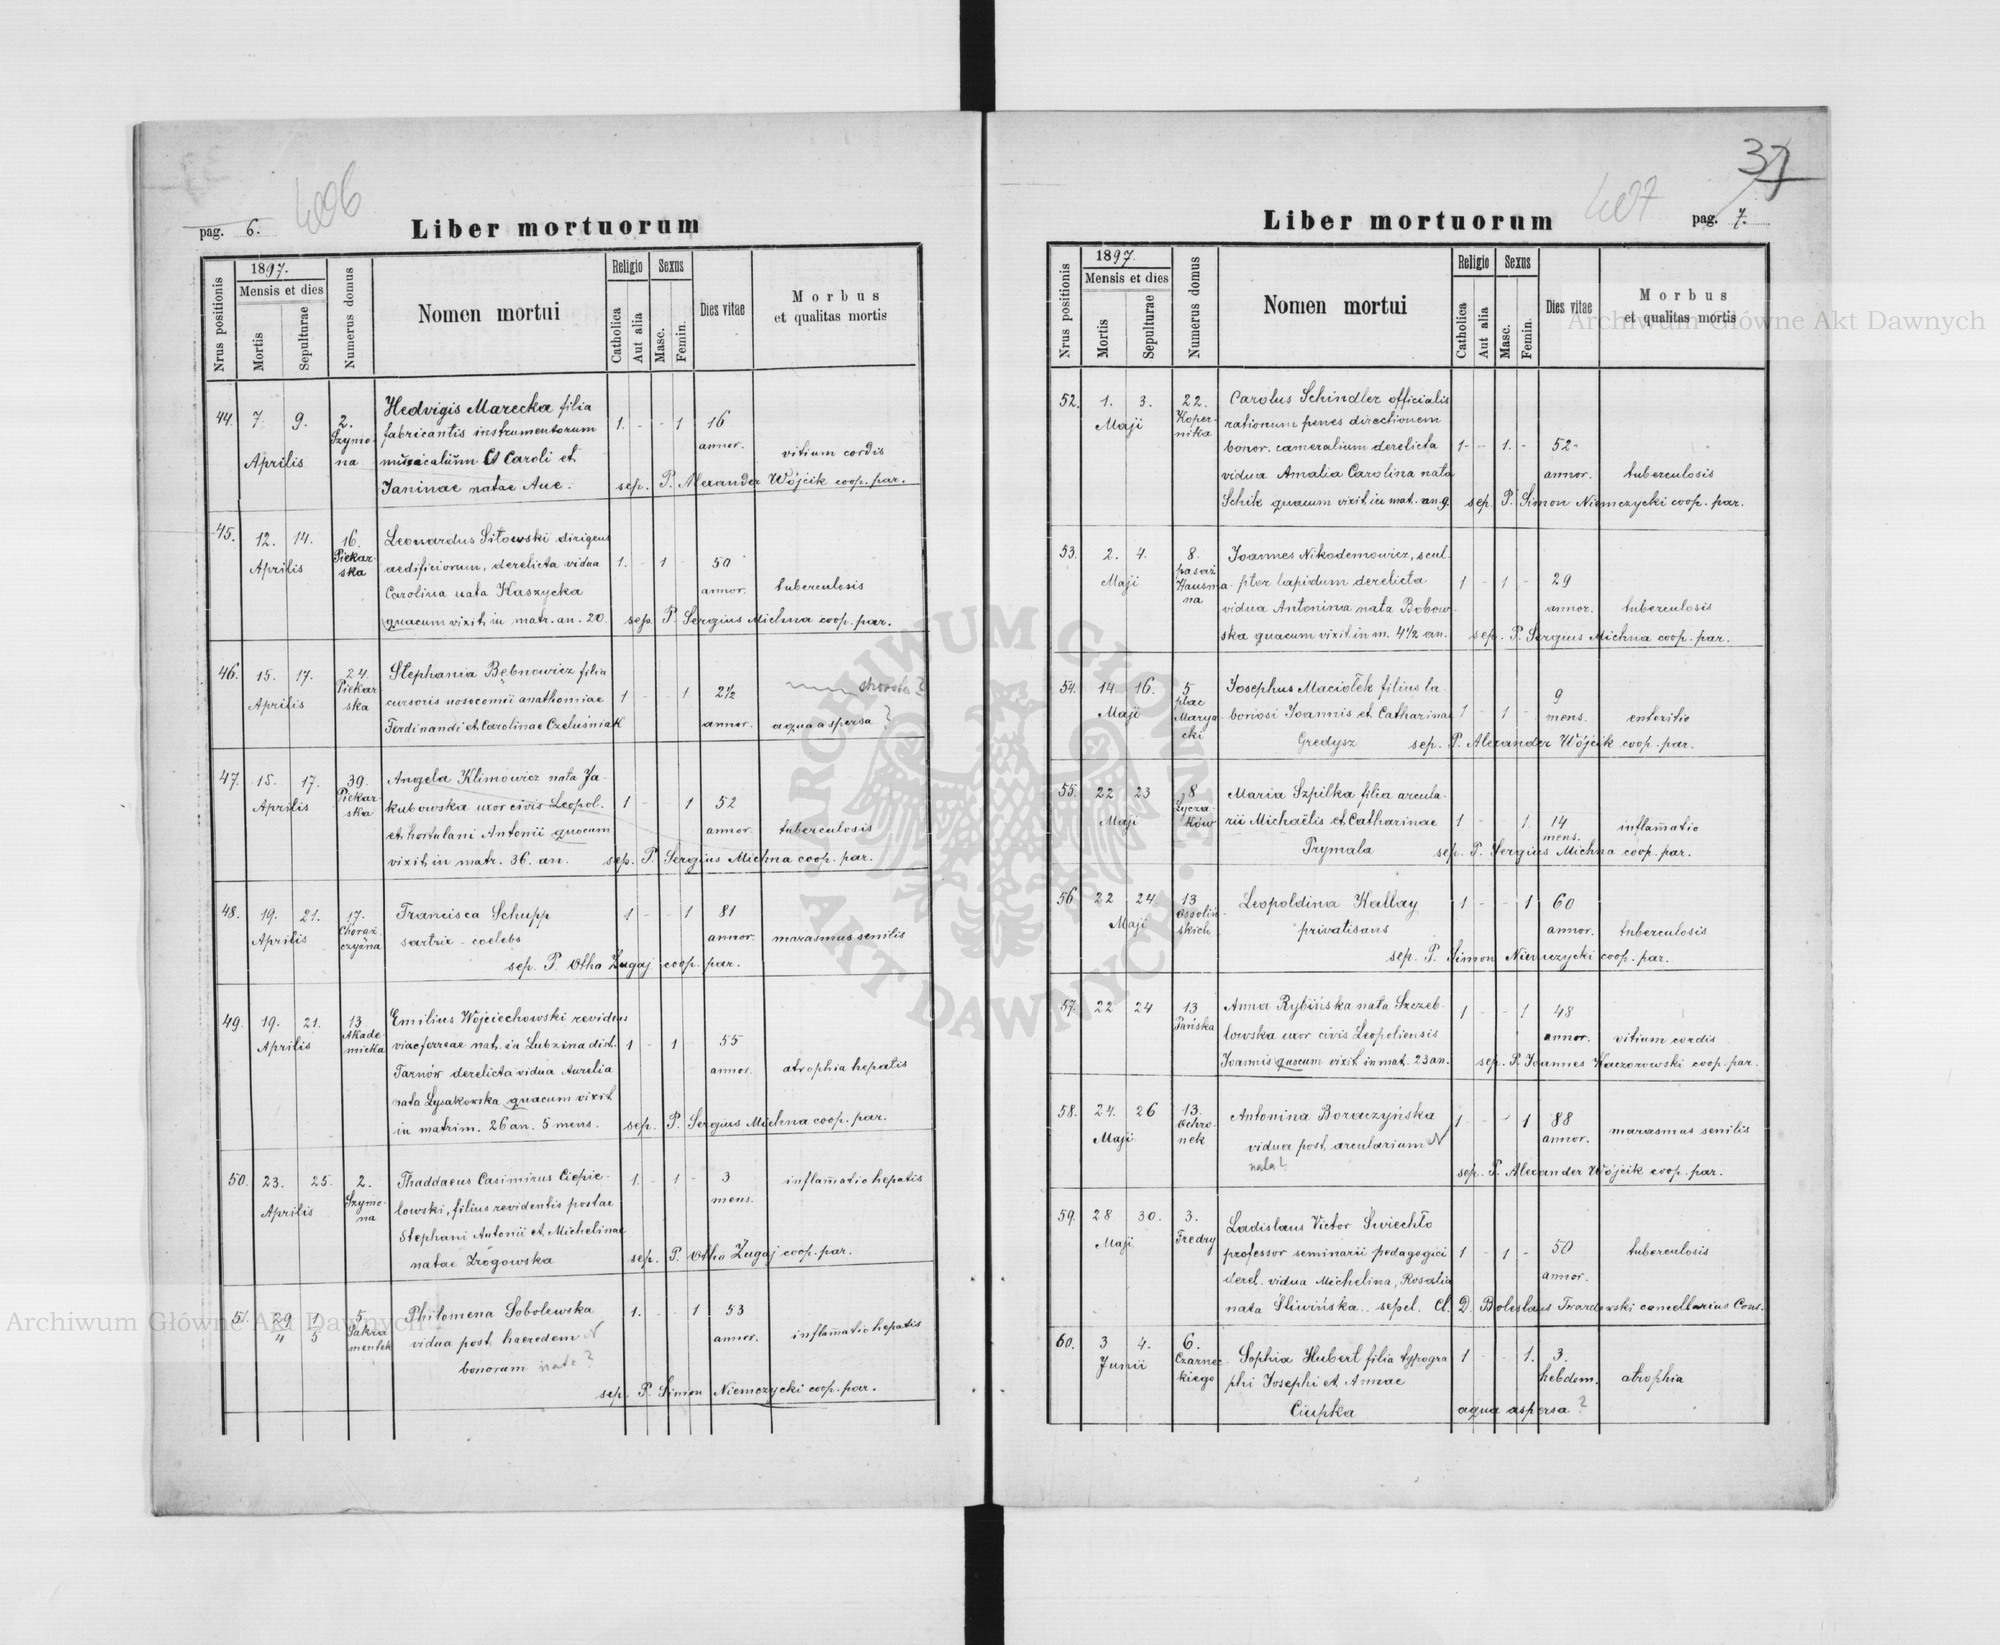 pag. 6.
Liber mortuorum
Nrus positionis
1897.
Mensis et dies
Mortis
Sepulturae
Numerus domus
Nomen mortui
Religio
Catholica
Aut alia
Sexus
Masc.
Femin.
Dies vitae
Morbus
et qualitas mortis
44. 7. 9. 2. Hedvigis Marecka filia
Szymo- fabricantis instrumentorum 1. - - 1 16
Aprilis na musicalium Caroli et annor. vitium cordis
Janinae natae Aue. sep. P. Alexander Wójcik coop. par.
45. 12. 14. 16. Leonardus Sitowski dirigens
Aprilis Piekar- aedificiorum, derelicta vidua 1. - 1 - 50
ska Carolina nata Kaszycka annor. tuberculosis
quacum vixit in matr. an. 20. sep. P. Sergius Michna coop. par.
46. 15. 17. 24. Stephania Bębnowicz filia
Aprilis Piekar cursoris nosocomii anathomiae 1 - - 1 2½ choroba?
ska Ferdinandi et Carolinae Czeluśniak annor. aqua aspersa ?
47. 15. 17. 39. Angela Klimowicz nata Ja-
Aprilis Piekar kubowska uxor civis Leopol. 1 - - 1 52
ska et hortulani Antonii quocum annor. tuberculosis
vixit in matr. 36. an. sep. P. Sergius Michna coop. par.
48. 19. 21. 17. Francisca Schupp 1 - - 1 81
Aprilis Chorąż- sartrix - coelebs annor. marasmus senilis
czyzna sep. P. Otho Żugaj coop. par.
49. 19. 21. 13. Emilius Wojciechowski revidens
Aprilis Akade- viae ferreae nat. in Lubzina dist. 1 - 1 - 55
micka Tarnów derelicta vidua Aurelia annor. atrophia hepatis
nata Łysakowska quacum vixit
in matrim. 26 an. 5 mens. sep. P. Sergius Michna coop. par.
50. 23. 25. 2. Thaddaeus Casimirus Ciepie- 1. - 1 - 3 inflam̄atio hepatis
Aprilis Szymo- lowski, filius revidentis postae mens.
na Stephani Antonii et Michelinae
natae Zrogowska sep. P. Otho Żugaj coop. par.
51. 29 1 5. Philomena Sobolewska 1. - - 1 53
4 5 Sakra vidua post haeredem annor. inflam̄atio hepatis
mentek bonorum nata?
sep. P. Simon Niemczycki coop. par.
37
pag. 7.
Liber mortuorum
Nrus positionis
1897.
Mensis et dies
Mortis
Sepulturae
Numerus domus
Nomen mortui
Religio
Catholica
Aut alia
Sexus
Masc.
Femin.
Dies vitae
Morbus
et qualitas mortis
52. 1. 3. 22. Carolus Schindler officialis
Maji Koper- rationum penes directionem
nika bonor. cameralium derelicta 1 - 1. - 52
vidua Amalia Carolina nata annor. tuberculosis
Schik quacum vixit in mat. an. 9. sep. P. Simon Niemczycki coop. par.
53. 2. 4. 8. Joannes Nikodemowicz, scul-
Maji pasaż Hausma- ptor lapidum derelicta 1 - 1 - 29
na vidua Antonina nata Bobow- annor. tuberculosis
ska quacum vixit in m. 4½ an. sep. P. Sergius Michna coop. par.
54. 14. 16. 5 Josephus Maciołek filius la- 9
Maji plac Marya- boriosi Joannis et Catharinae 1 - 1 - mens. enteritis
cki Gredysz sep. P. Alexander Wójcik coop. par.
55. 22 23 8 Maria Szpilka filia arcula-
Maji Łycza- ków rii Michaëlis et Catharinae 1 - - 1. 14 inflam̄atio
mens.
Prymala sep. P. Sergius Michna coop. par.
56 22 24 13 Leopoldina Kallay 1 - - 1 60
Maji Ossoliń- skich privatisans annor. tuberculosis
sep. P. Simon Niemczycki coop. par.
57. 22 24 13 Anna Rybińska nata Szczeb- 1 - - 1 48
Pańska lowska uxor civis Leopoliensis annor. vitium cordis
Joannis quocum vixit in mat. 23 an. sep. P. Joannes Kaczorowski coop. par.
58. 24. 26 13. Antonina Boraczyńska 1 - - 1 88
Maji Ochro- nek vidua post arcularium annor. marasmus senilis
nata? sep. P. Alexander Wójcik coop. par.
59. 28 30. 3. Ladislaus Victor Świechło
Maji Fredry professor seminarii pedagogici 1 - 1 - 50 tuberculosis
derel. vidua Michelina, Rosalia annor.
nata Śliwińska sepel. Cl. D. Boleslaus Twardowski cancellarius Cons.
60. 3 4. 6. Sophia Hubert filia typogra 1 - - 1. 3.
Junii Czarnec- kiego phi Josephi et Annae hebdom. atrophia
Ciupka aqua aspersa ?
Archiwum Główne Akt Dawnych
Archiwum Główne Akt Dawnych
ARCHIWUM GŁÓWNE AKT DAWNYCH